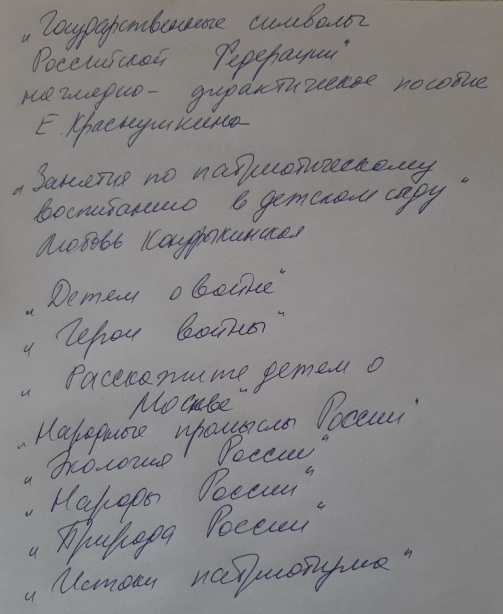 „Государственные символы
Российской Федерации"
наглядно- дидактическое пособие
Е. Краснушкина
„Занятия по патриотическому
воспитанию в детском саду"
Любовь Кондрыкинская
„Детям о войне"
„Герои войны"
„Расскажите детям о
Москве"
„Народные промыслы России"
„Экология России"
„Народы России"
„Природа России"
„Истоки патриотизма"